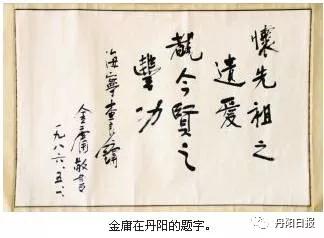 懷先祖之
遺愛
觀今賢之
豐功
海寧查良鏞
金庸敬書
一九八六、五、一、
金庸在丹阳的题字。
丹阳日报